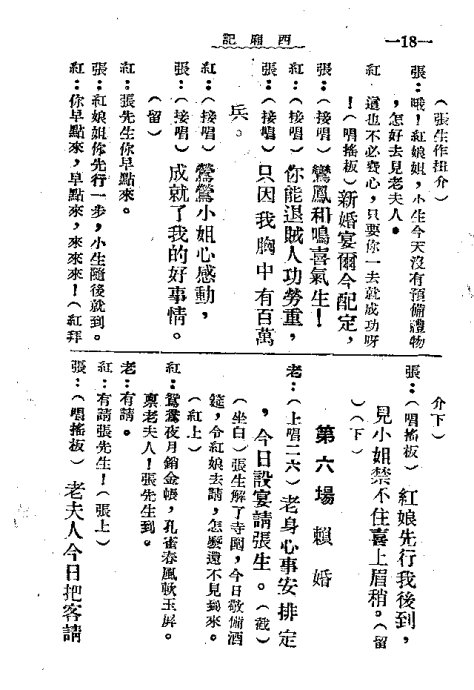 —18—
西廂記
（張生作扭介）
張：哦！紅娘姐，小生今天沒有預備禮物
，怎好去見老夫人。
紅　這也不必費心，只要你一去就成功呀
！（唱搖板）新婚宴爾今配定，
張：（接唱）鸞鳳和鳴喜氣生！
紅：（接唱）你能退賊人功勞重，
張：（接唱）只因我胸中有百萬
兵。
紅：（接唱）鶯鶯小姐心感動，
張：（接唱）成就了我的好事情。
（留）
紅：張先生你早點來。
張：紅娘姐你先行一步，小生隨後就到。
紅：你早點來，早點來，來來來！（紅拜
介下）
張：（唱搖板）紅娘先行我後到，
見小姐禁不住喜上眉稍。（留
）（下）
第六場　賴婚
老：（上唱二六）老身心事安排定
，今日設宴請張生。（截）
（坐白）張生解了寺圍，今日敬備酒
筵，令紅娘去請，怎麼還不見到來。
（紅上）
紅：鴛鴦夜月銷金帳，孔雀春風軟玉屏。
禀老夫人！張先生到。
老：有請。
紅：有請張先生！（張上）
張：（唱搖板）老夫人今日把客請